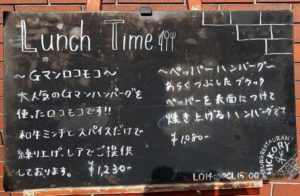 Lunch Time
〜Gマンロコモコ〜
大人気のGマンハンバーグを
使ったロコモコです!!
和牛ミンチとスパイスだけで
練り上げ、レアでご提供
しております。 ¥1,230-
〜ペッパーハンバーグ〜
あらくつぶしたブラック
ペッパーを表面につけて
焼き上げるハンバーグです
¥1,080-
RESTAURANT
HICKORY